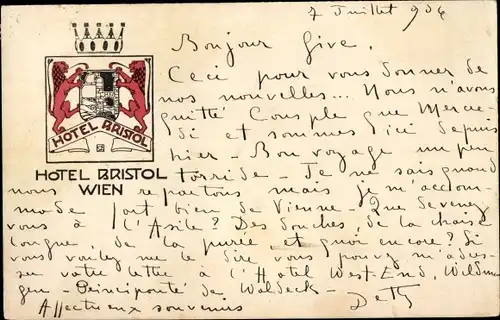 7 Juillet 906
Bonjour Give,
Ceci pour vous donner de
nos nouvelles... Nous n'avons
quitté que Mercre-
di et sommes ici depuis
hier - Bon voyage un peu
torride - Je ne sais quand
nous repartons mais je m'accom-
mode fort bien de Vienne - Que devenez
vous à l'Asile? Des Souches, de la chaise
longue, de la purée et quoi encore? Si
vous voulez me le dire vous pouvez m'adres-
ser votre lettre à l'Hotel West-End, Wildun-
gen - Principauté de Waldeck -
Affectueux souvenirs
HOTEL BRISTOL
HOTEL BRISTOL
WIEN